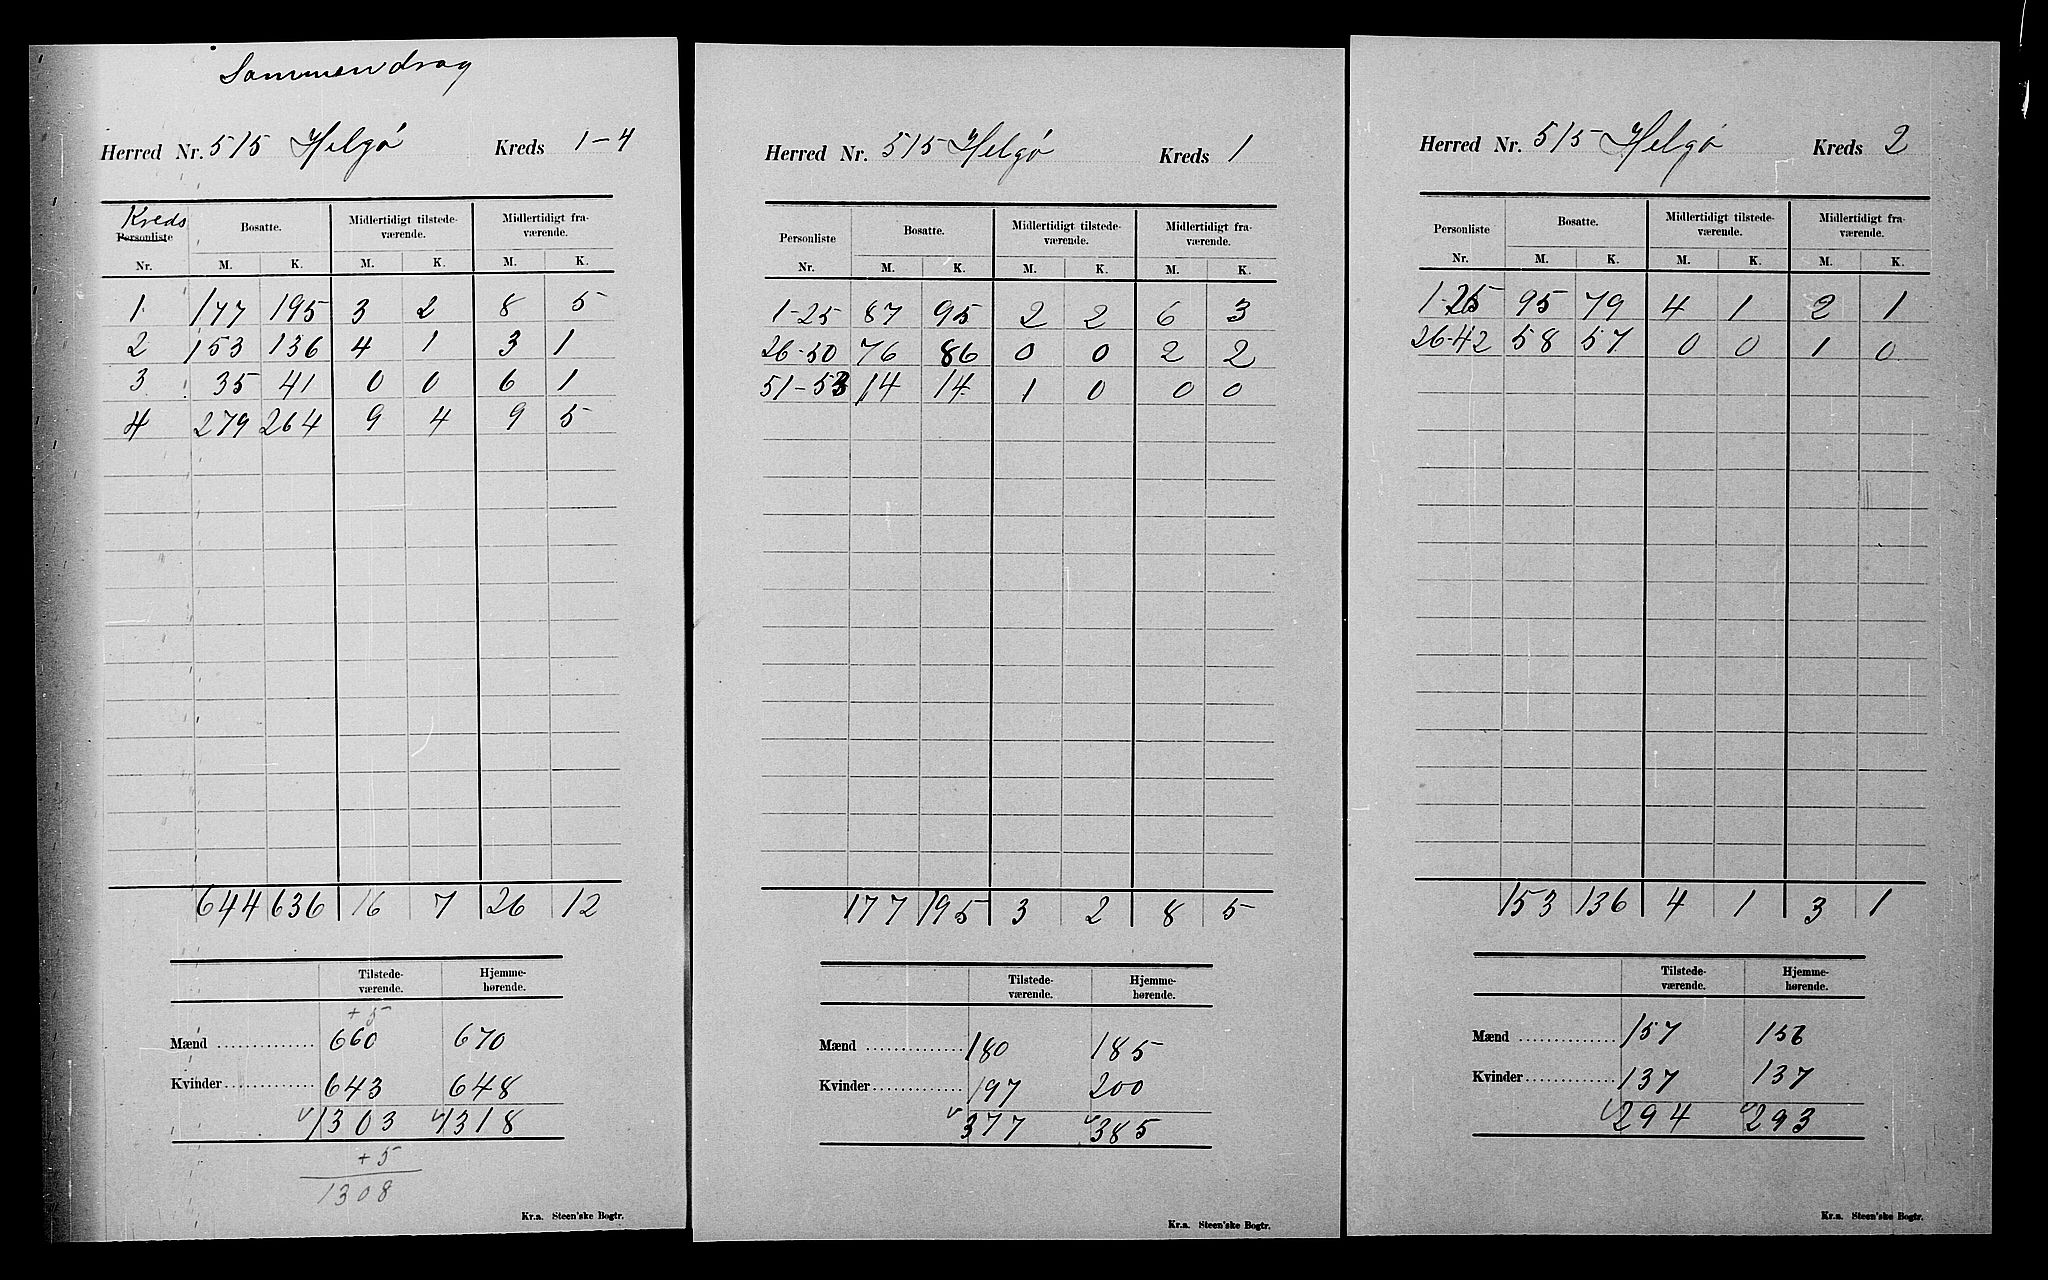 Sammendrag
Herred Nr. 515 Helgø Kreds 1-4
Kreds
Personliste Bosatte. Midlertidigt tilstede- Midlertidigt fra-
værende. værende.
Nr. M. K. M. K. M. K.
1 177 195 3 2 8 5
2 153 136 4 1 3 1
3 35 41 0 0 6 1
4 279 264 9 4 9 5
644 636 16 7 26 12
Tilstede- Hjemme-
værende. hørende.
+ 5
Mænd 660 670
Kvinder 643 648
1303 1318
+ 5
1308
Kr.a. Steen'ske Bogtr.
Herred Nr. 515 Helgø Kreds 1
Personliste Bosatte. Midlertidigt tilstede- Midlertidigt fra-
værende. værende.
Nr. M. K. M. K. M. K.
1-25 87 95 2 2 6 3
26-50 76 86 0 0 2 2
51-53 14 14 1 0 0 0
177 195 3 2 8 5
Tilstede- Hjemme-
værende. hørende.
Mænd 180 185
Kvinder 197 200
377 385
Kr.a. Steen'ske Bogtr.
Herred Nr. 515 Helgø Kreds 2
Personliste Bosatte. Midlertidigt tilstede- Midlertidigt fra-
værende. værende.
Nr. M. K. M. K. M. K.
1-25 95 79 4 1 2 1
26-42 58 57 0 0 1 0
153 136 4 1 3 1
Tilstede- Hjemme-
værende. hørende.
Mænd 157 156
Kvinder 137 137
294 293
Kr.a. Steen'ske Bogtr.